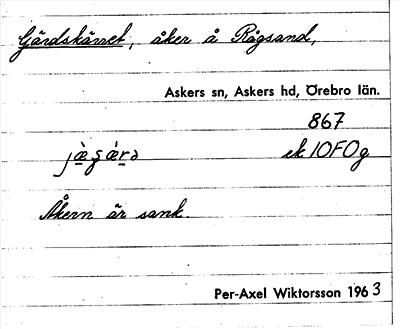 Gärdskärret, åker å Rågsand,
Askers sn, Askers hd, Örebro län.
867
jæ̀ʂæ̀rə ek 10F0g
Åkern är sank.
Per-Axel Wiktorsson 1963